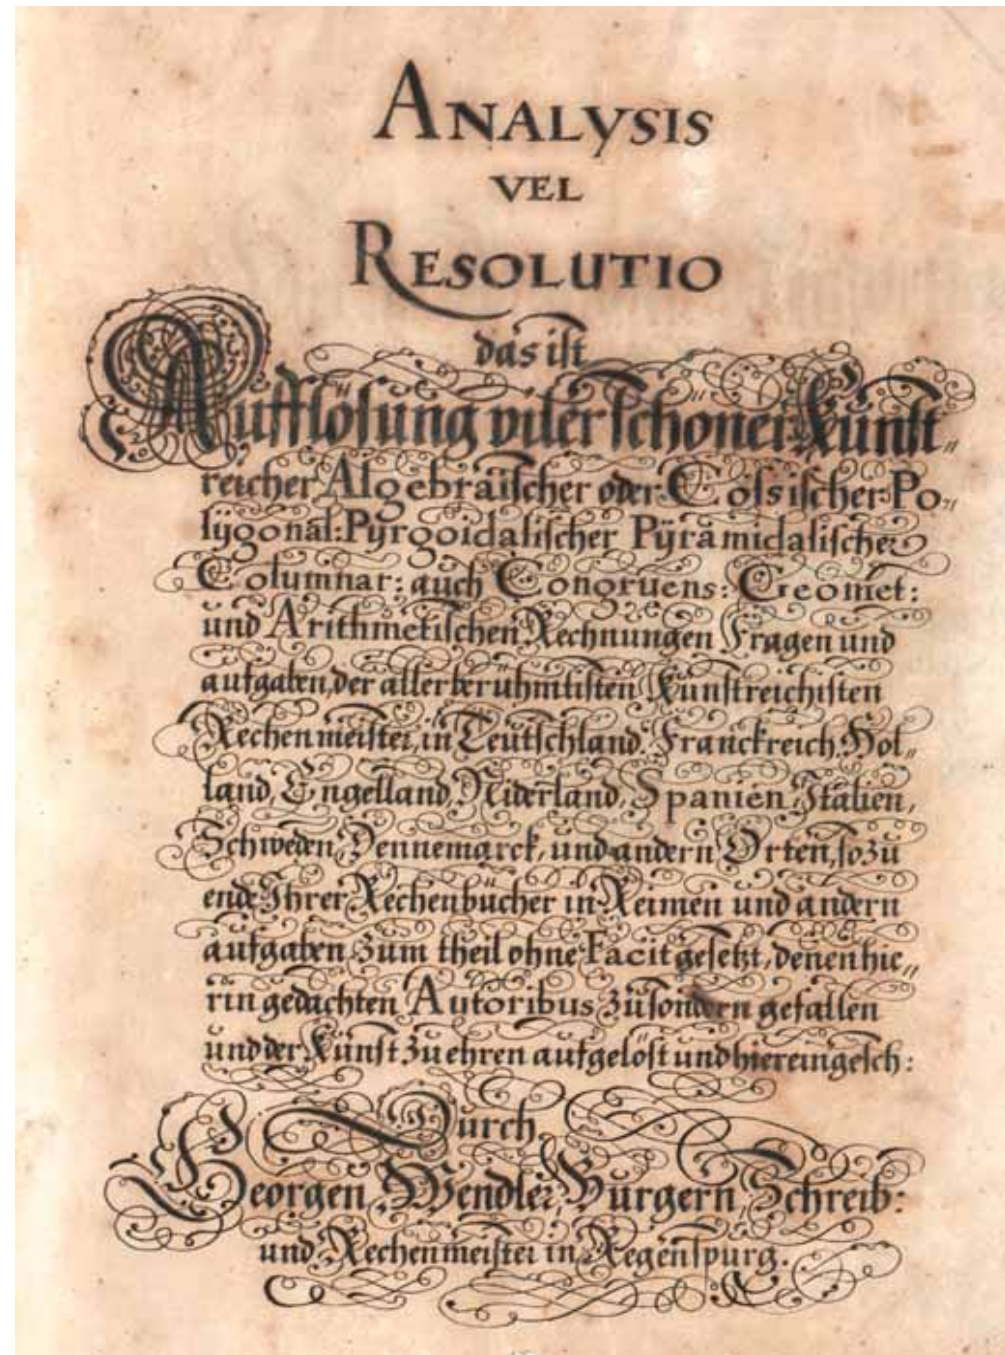 ANALYSIS
VEL
RESOLUTIO
das ist
Aufflösung viler schöner Künst„
reicher Algebraischer oder Cossischer: Po„
lÿgonal: Pÿrgoidalischer Pÿramidalischer
Columnar: auch Congruens: Geomet:
und Arithmetischen Rechnungen Fragen und
aufgaben, der allerberühmtisten Künstreichisten
Rechenmeister, in Teütschland, Franckreich, Hol„
land, Engelland, Niderland, Spanien, Italien,
Schweden, Dennemarck, und andern Orten, so zu
ende Ihrer Rechenbücher in Reimen und andern
aufgaben zum theil ohne Facit gesetzt, denen hie„
rin gedachten Autoribus zu sondern gefallen
und der Künst zu ehren aufgelöst und hierein gesch:
Durch
Georgen Wendler, Burgern, Schreib:
und Rechenmeister in Regenspurg.